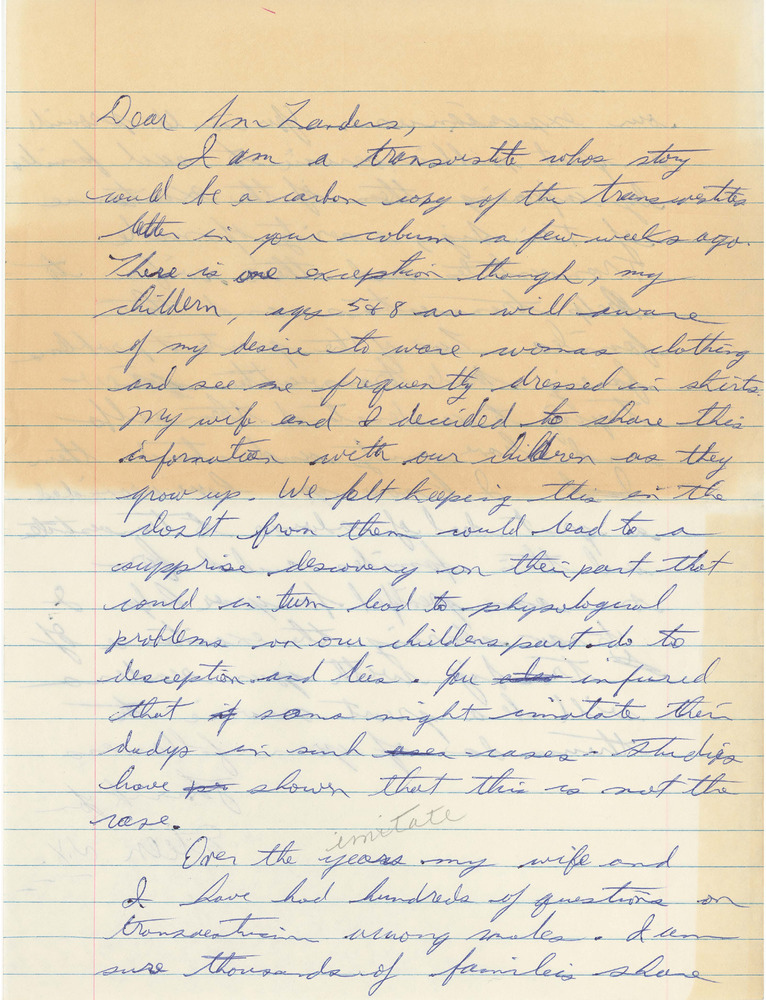 Dear Ann Landers,
I am a transvestite whos story
would be a carbon copy of the transvestites
letter in your colum a few weeks ago.
There is one exception though, my
childern, ages 5 & 8 are will aware
of my desire to ware womas clothing
and see me frequently dressed in skirts.
My wife and I decided to share this
information with our children as they
grow up. We felt keeping this in the
closlt from them would lead to a
supprise descovery on their part that
could in turn lead to physological
problems on our childers part do to
desception and lies. You infured
that if sons might imatate their
dadys in such cases. Studies
have shown that this is not the
case.
imitate
Over the years my wife and
I have had hundreds of questions on
transvestism among males. I am
sure thousands of famileis share